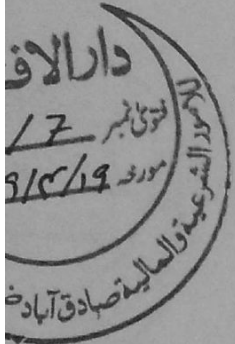 دارالاف
فتویٰ نمبر 7/
مورخہ 19/3/9
الامور الشرعیة والمالیة صادق آباد ض